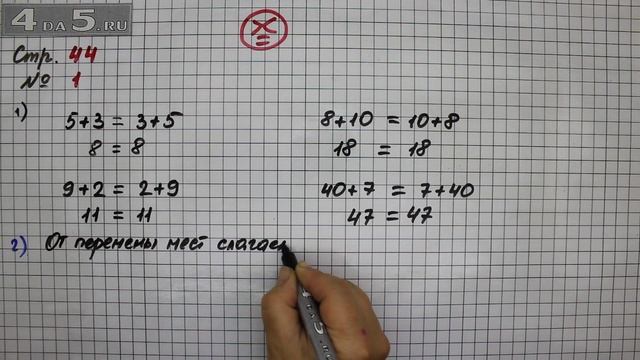 4DA5.RU
Стр. 44
№ 1
X
=
1)
5+3 = 3+5
8 = 8
8+10 = 10+8
18 = 18
9+2 = 2+9
11 = 11
40+7 = 7+40
47 = 47
2) От перемены мест слагаем
4DA5